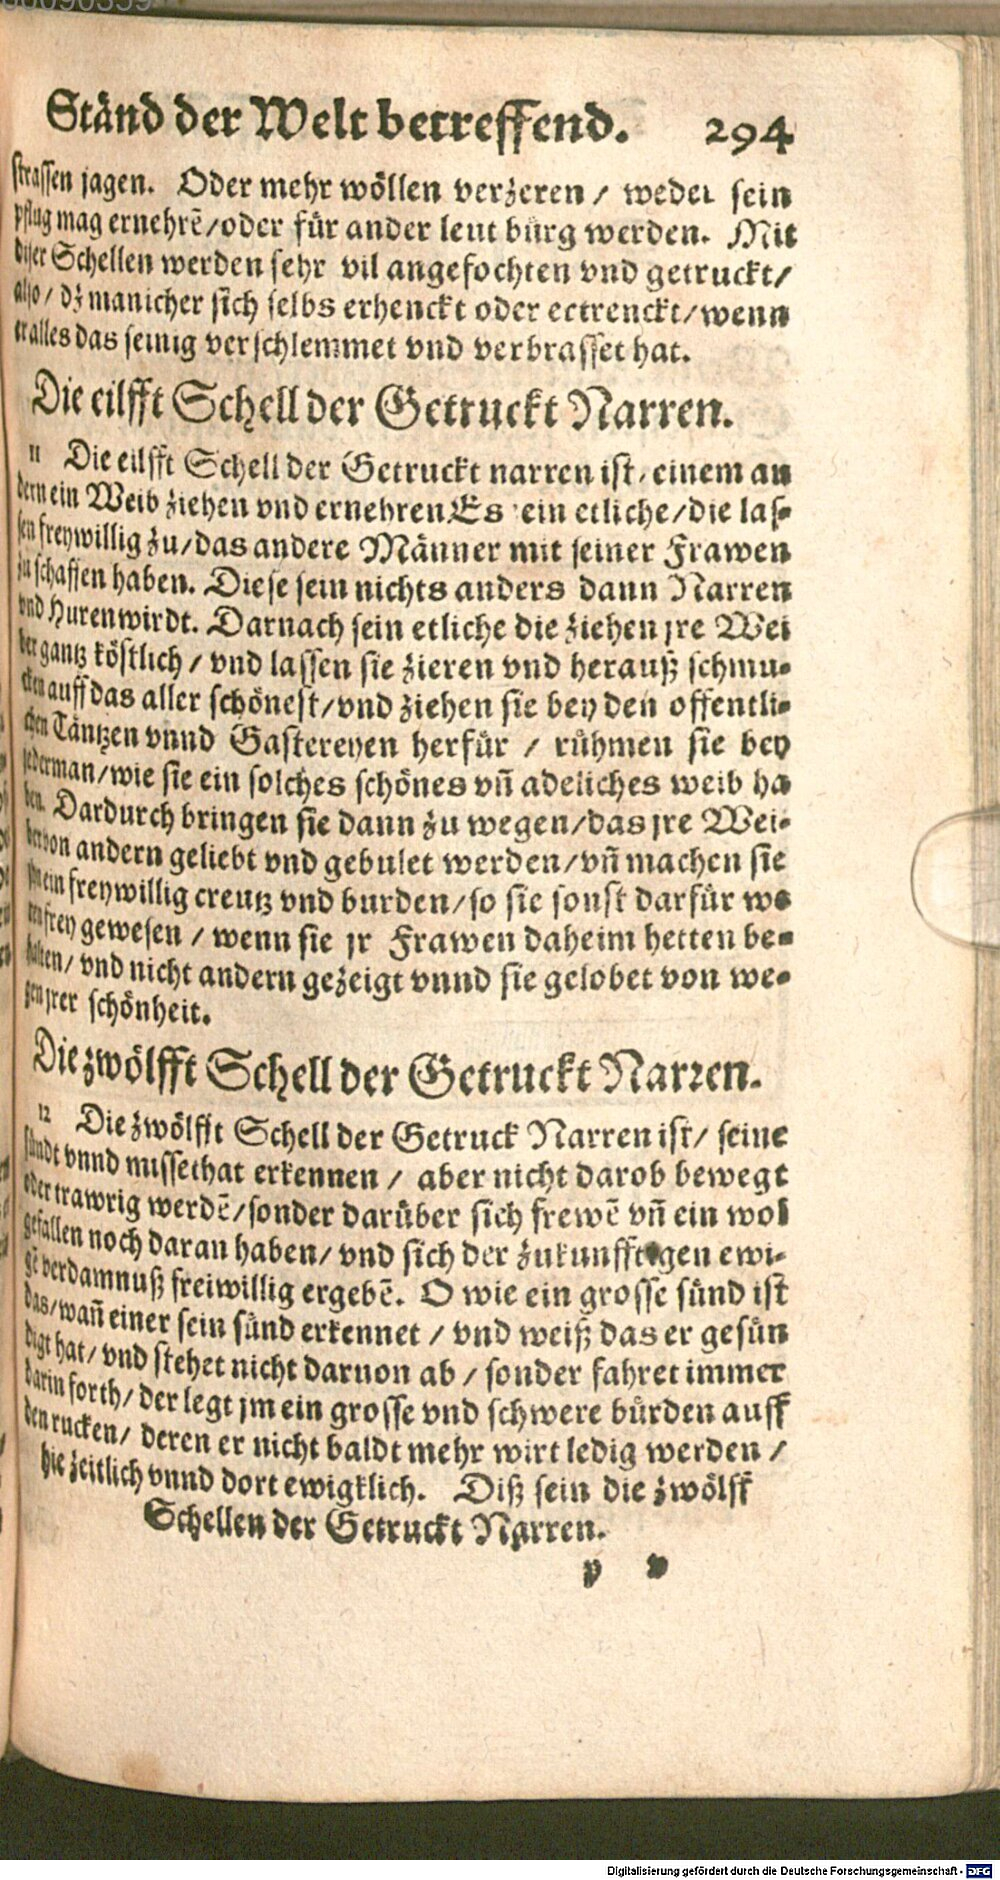 Ständ der Welt betreffend. 294
strassen jagen. Oder mehr wöllen verzeren / weder sein
pflug mag ernehrē/oder für ander leut bürg werden. Mit
diser Schellen werden sehr vil angefochten vnd getruckt/
also / dz manicher sich selbs erhenckt oder ectrenckt/wenn
er alles das seinig verschlemmet vnd verbrasset hat.
Die eilfft Schell der Getruckt Narren.
11 Die eilfft Schell der Getruckt narren ist, einem an
dern ein Weib ziehen vnd ernehren. Es sein etliche/die las-
sen freywillig zu/das andere Männer mit seiner Frawen
zu schaffen haben. Diese sein nichts anders dann Narren
vnd Hurenwirdt. Darnach sein etliche die ziehen jre Wei
ber gantz köstlich / vnd lassen sie zieren vnd herauß schmu-
cken auff das aller schönest/vnd ziehen sie bey den offentli-
chen Täntzen vnnd Gastereyen herfür / rühmen sie bey
jederman/wie sie ein solches schönes vñ adeliches weib ha
ben. Dardurch bringen sie dann zu wegen/das jre Wei-
ber von andern geliebt vnd gebulet werden/vñ machen sie
jnen ein freywillig creutz vnd burden/so sie sonst darfür we
ren frey gewesen / wenn sie jr Frawen daheim hetten be-
halten/ vnd nicht andern gezeigt vnnd sie gelobet von we-
gen jrer schönheit.
Die zwölfft Schell der Getruckt Narren.
12 Die zwölfft Schell der Getruck Narren ist/ seine
sündt vnnd missethat erkennen / aber nicht darob bewegt
oder trawrig werdē/sonder darüber sich frewē vñ ein wol
gefallen noch daran haben/ vnd sich der zukunfftigen ewi-
gē verdamnuß freiwillig ergebē. O wie ein grosse sünd ist
das/wañ einer sein sünd erkennet / vnd weiß das er gesün
digt hat/ vnd stehet nicht daruon ab / sonder fahret immer
darin forth/ der legt jm ein grosse vnd schwere bürden auff
den rucken/ deren er nicht baldt mehr wirt ledig werden /
hie zeitlich vnnd dort ewigklich. Diß sein die zwölff
Schellen der Getruckt Narren.
p v
Digitalisierung gefördert durch die Deutsche Forschungsgemeinschaft - DFG